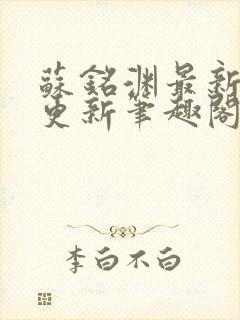 蘇銘淵最新
更新筆趣閣
李白不白